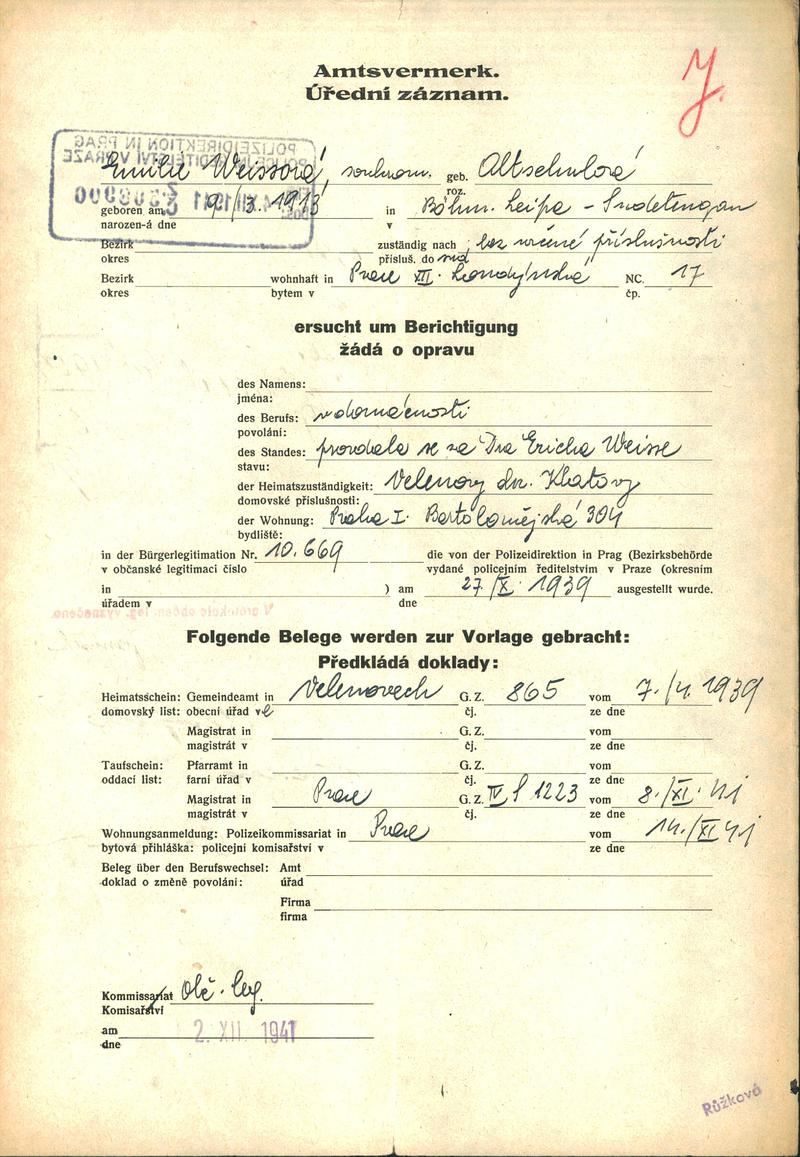 Amtsvermerk.
Úřední záznam.
J.
POLIZEIDIREKTION IN PRAG
POLICEJNÍ ŘEDITELSTVÍ V PRAZE
Emilie Weissová, soukrom. geb. Altschulová
roz.
geboren am 9/3. 1913 in Böhm. Leipa - Sudetengau
narozen-á dne v
Bezirk zuständig nach bez určené příslušnosti
okres přísluš. do
Bezirk wohnhaft in Praze XII. Londýnská NC. 17
okres bytem v čp.
ersucht um Berichtigung
žádá o opravu
des Namens:
jména:
des Berufs: v domácnosti
povolání:
des Standes: provdala se za Dra Ericha Weisse
stavu:
der Heimatszuständigkeit: Velenovy okr. Klatovy
domovské příslušnosti:
der Wohnung: Praha I. Bartolomějská 304
bydliště:
in der Bürgerlegitimation Nr. 10.669 die von der Polizeidirektion in Prag (Bezirksbehörde
v občanské legitimaci číslo vydané policejním ředitelstvím v Praze (okresním
in ) am 27/X. 1939 ausgestellt wurde.
úřadem v dne
Folgende Belege werden zur Vorlage gebracht:
Předkládá doklady:
Heimatsschein: Gemeindeamt in Velenovech G. Z. 865 vom 7./4. 1939
domovský list: obecní úřad ve čj. ze dne
Magistrat in G. Z. vom
magistrát v čj. ze dne
Taufschein: Pfarramt in G. Z. vom
oddací list: farní úřad v čj. ze dne
Magistrat in Praze G. Z. IV S 1223 vom 8./XI. 41
magistrát v čj. ze dne
Wohnungsanmeldung: Polizeikommissariat in Praze vom 14./XI 41
bytová přihláška: policejní komisařství v ze dne
Beleg über den Berufswechsel: Amt
doklad o změně povolání: úřad
Firma
firma
Kommissariat obč. leg.
Komisařství
am 2. XII. 1941
dne
Růžková